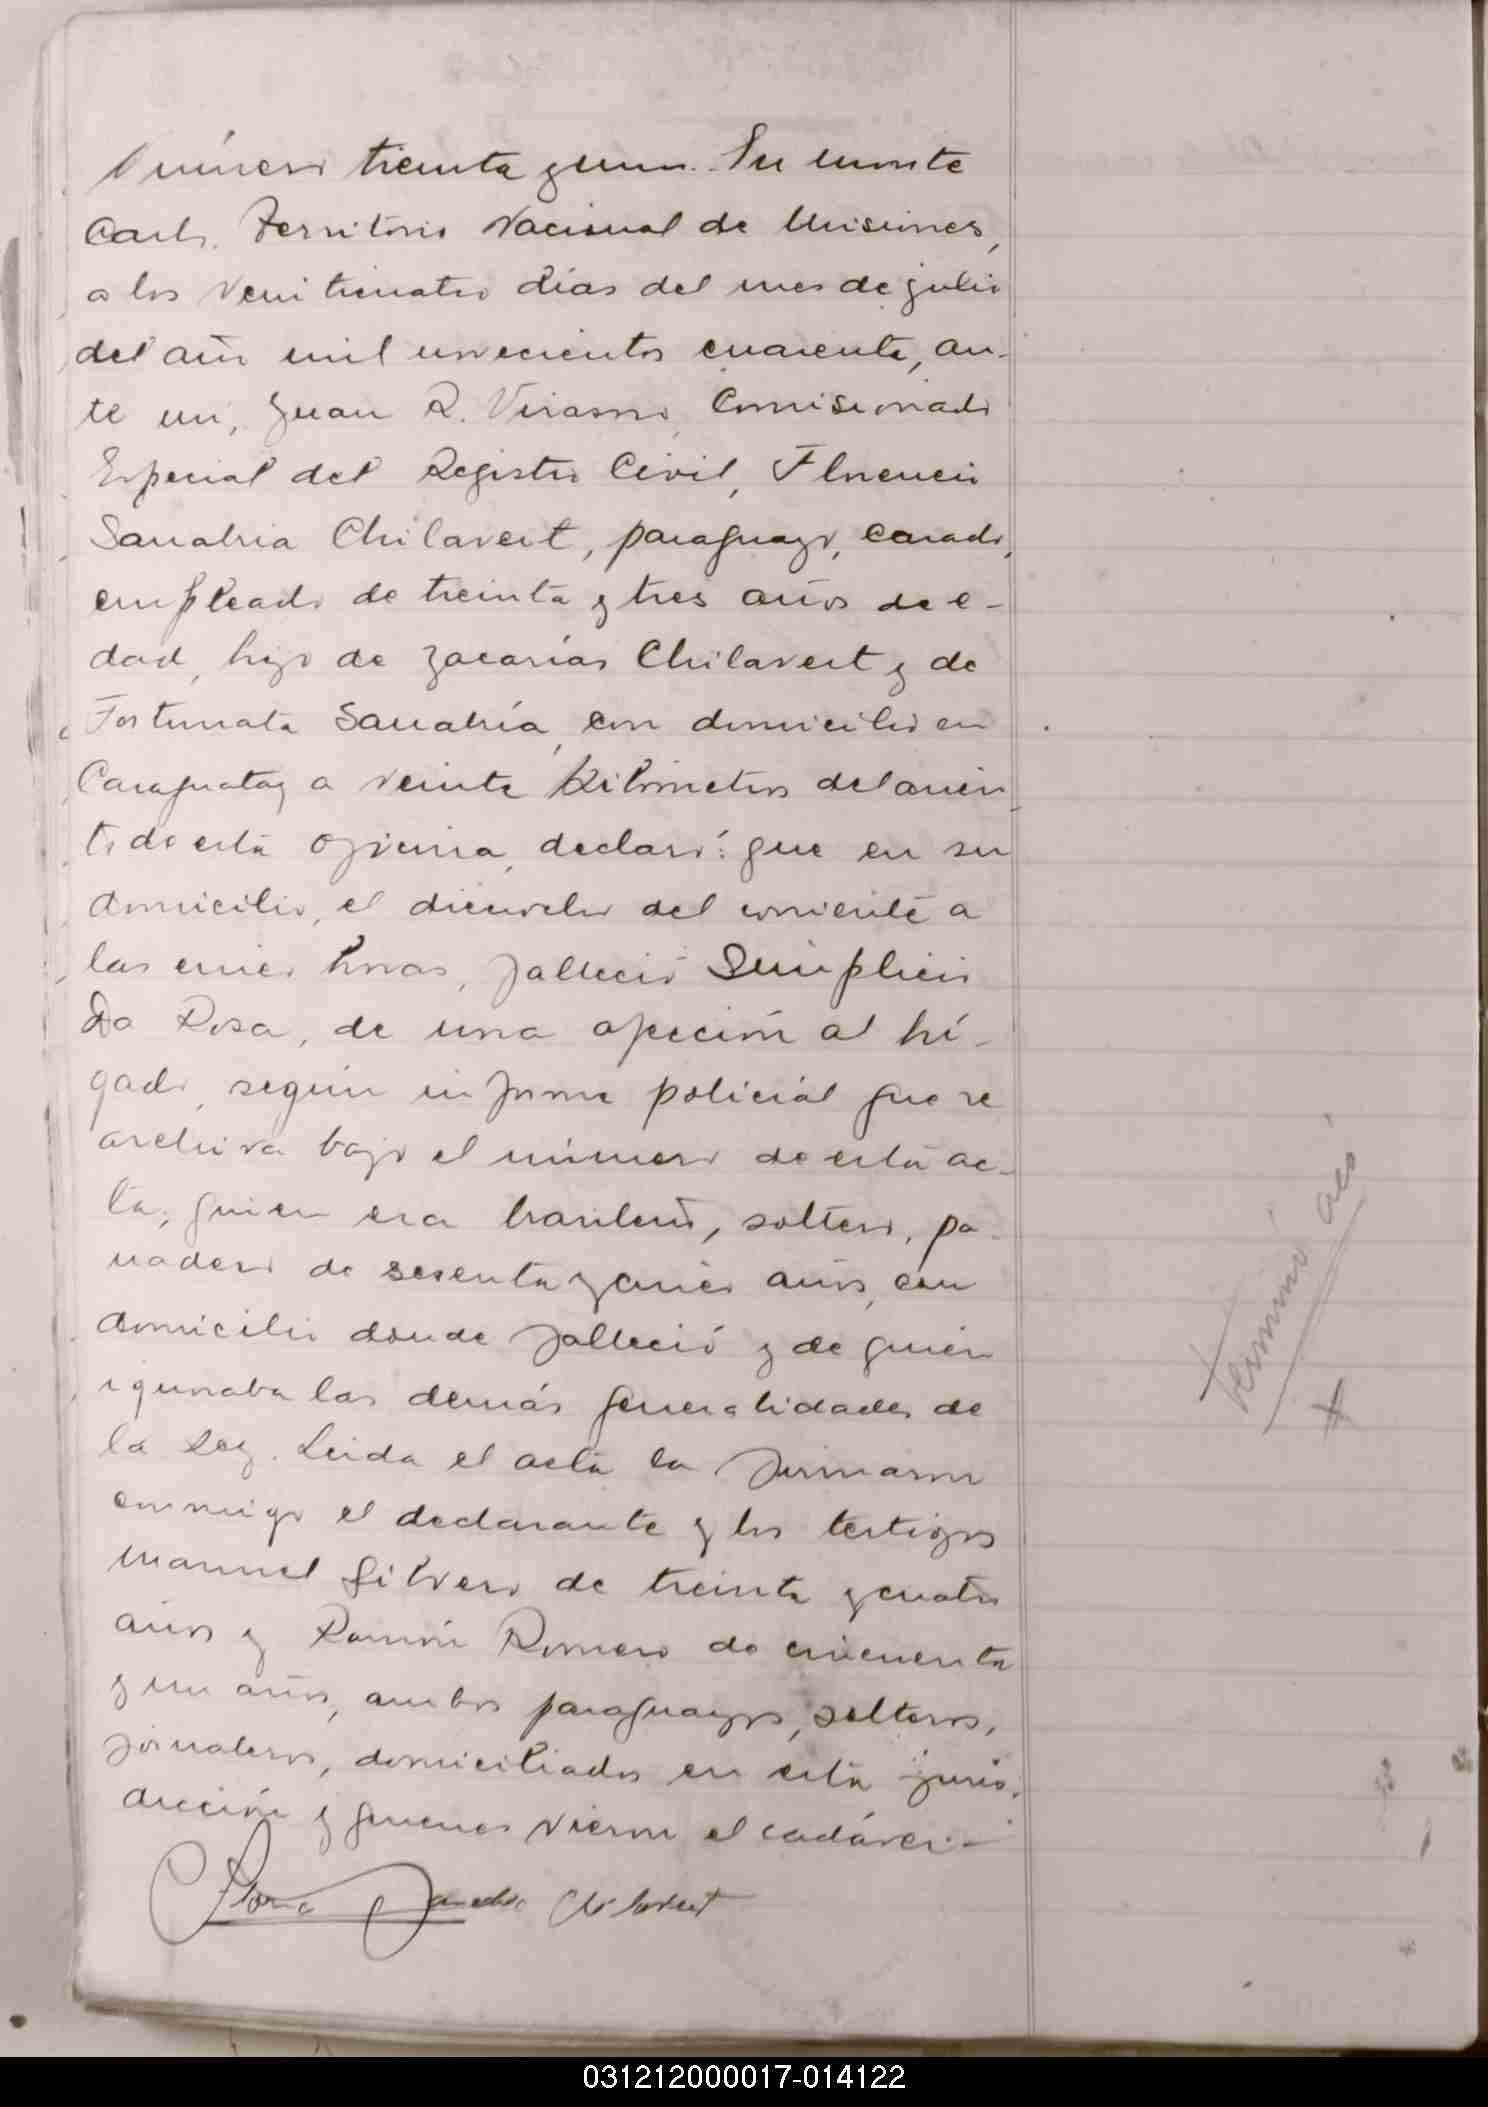 Número treinta y uno. En Monte
Carlo. Territorio Nacional de Misiones,
a los veinticuatro días del mes de julio
del año mil novecientos cuarenta, an-
te mí, Juan R. Virasoro, Comisionado
Especial del Registro Civil, Florencio
Sanabria Chilavert, paraguayo, casado,
empleado de treinta y tres años de e-
dad, hijo de Zacarías Chilavert y de
Fortunata Sanabria, con domicilio en
Caraguatay a veinte kilómetros del asien
to de esta oficina, declaró: que en su
domicilio, el diecinueve del corriente a
las cinco horas, falleció Simplicio
Da Rosa, de una afección al hí-
gado, según informe policial que se
archiva bajo el número de esta ac-
ta, quien era brasileño, soltero, pa-
nadero de sesenta y cinco años, con
domicilio donde falleció y de quien
ignoraba las demás generalidades de
la Ley. Leida el acta la firmaron
conmigo el declarante y los testigos
Manuel Silvero de treinta y cuatro
años y Ramón Romero de cincuenta
y un años, ambos paraguayos, solteros,
jornaleros, domiciliados en esta juris-
dicción y quienes vieron el cadáver.-
Sanabria Chilavert
Terminó acá
031212000017-014122